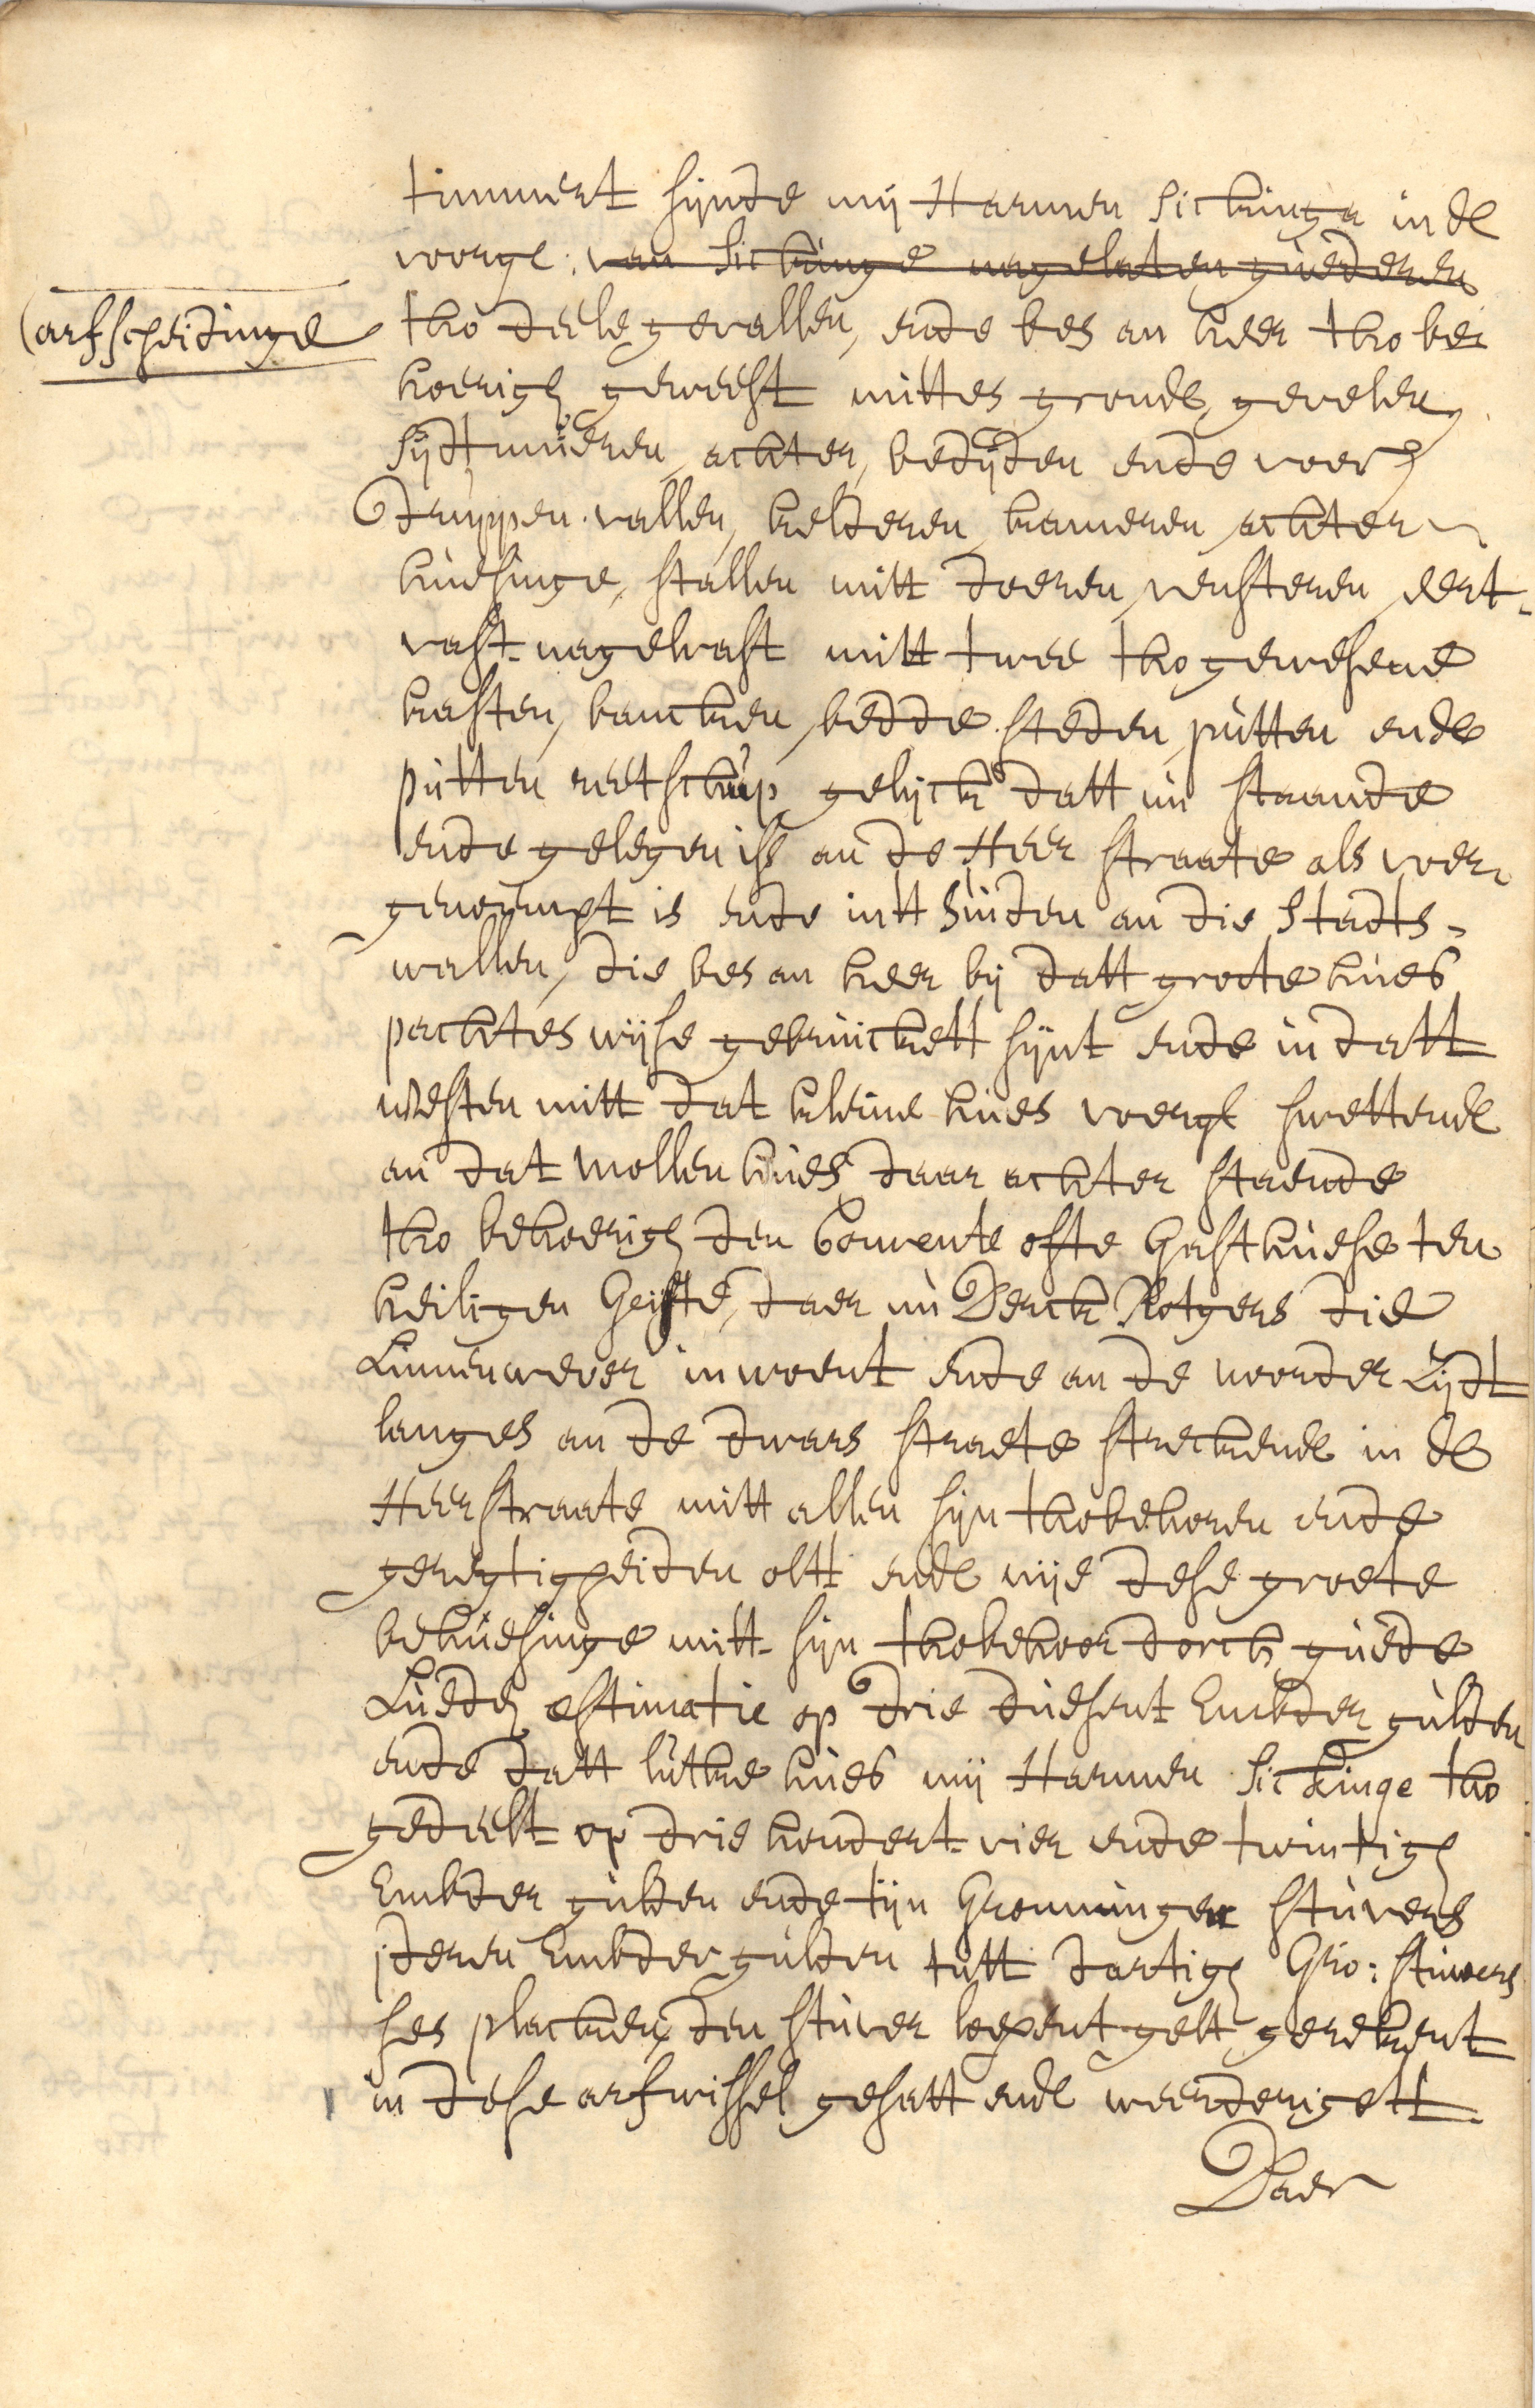 timmert sijnde mij Harmen Sickinga in de
voorge: van Sickinge nagelaten guederen
(arfscheidinge
tho deele gevallen, ende bes an heer tho be
hoerich geweest mittes gronde, gevelen,
sijdtmueren, achter, bedijden ende voer
druppen vallen, kelderen, kameren, achter
huesinge, stallen mitt doeren, vensteren, eert-
vast nagelvast mitt twee tho gewesene
kasten, bancken, bedde steden, putten ende
putten reetschup gelijck datt nu staande
ende gelegen iss an de Heer straate als voer
genoempt is ende intt Suiden an die Stadts-
wallen, die bes an heer bij datt groote hues
pachtes wijse gebruickett sijnt ende in datt
westen mitt dat kleine hues voerge swettende
an dat Mollen hues daar achter staende
tho behoerich den Convente ofte Gasthuese ten
heiligen Geiste, daer nu Derck Rotgers die
Linnenwever inwoent ende an de noorder Sijdt
langes an de dwars straete streckende in de
Heerstraate mitt allen sijn thobehoren ende
gerechtigheiden oltt ende nije dese groete
behuesinge mitt sijn thobehoor dorch guede
Luede estimatie op drie duesent Embder gulden
ende datt luttke hues mij Harmen Sickinge tho
gedeelt op drie hondert vier ende twintich
Embder gulden ende tijn Gronninger stuvers
jderen Embder gulden tott dartich Gro: stuivers
ses placken den stuver loepent gelt gerekent
in dese arfwissel gesatt ende weerderigett
Daer